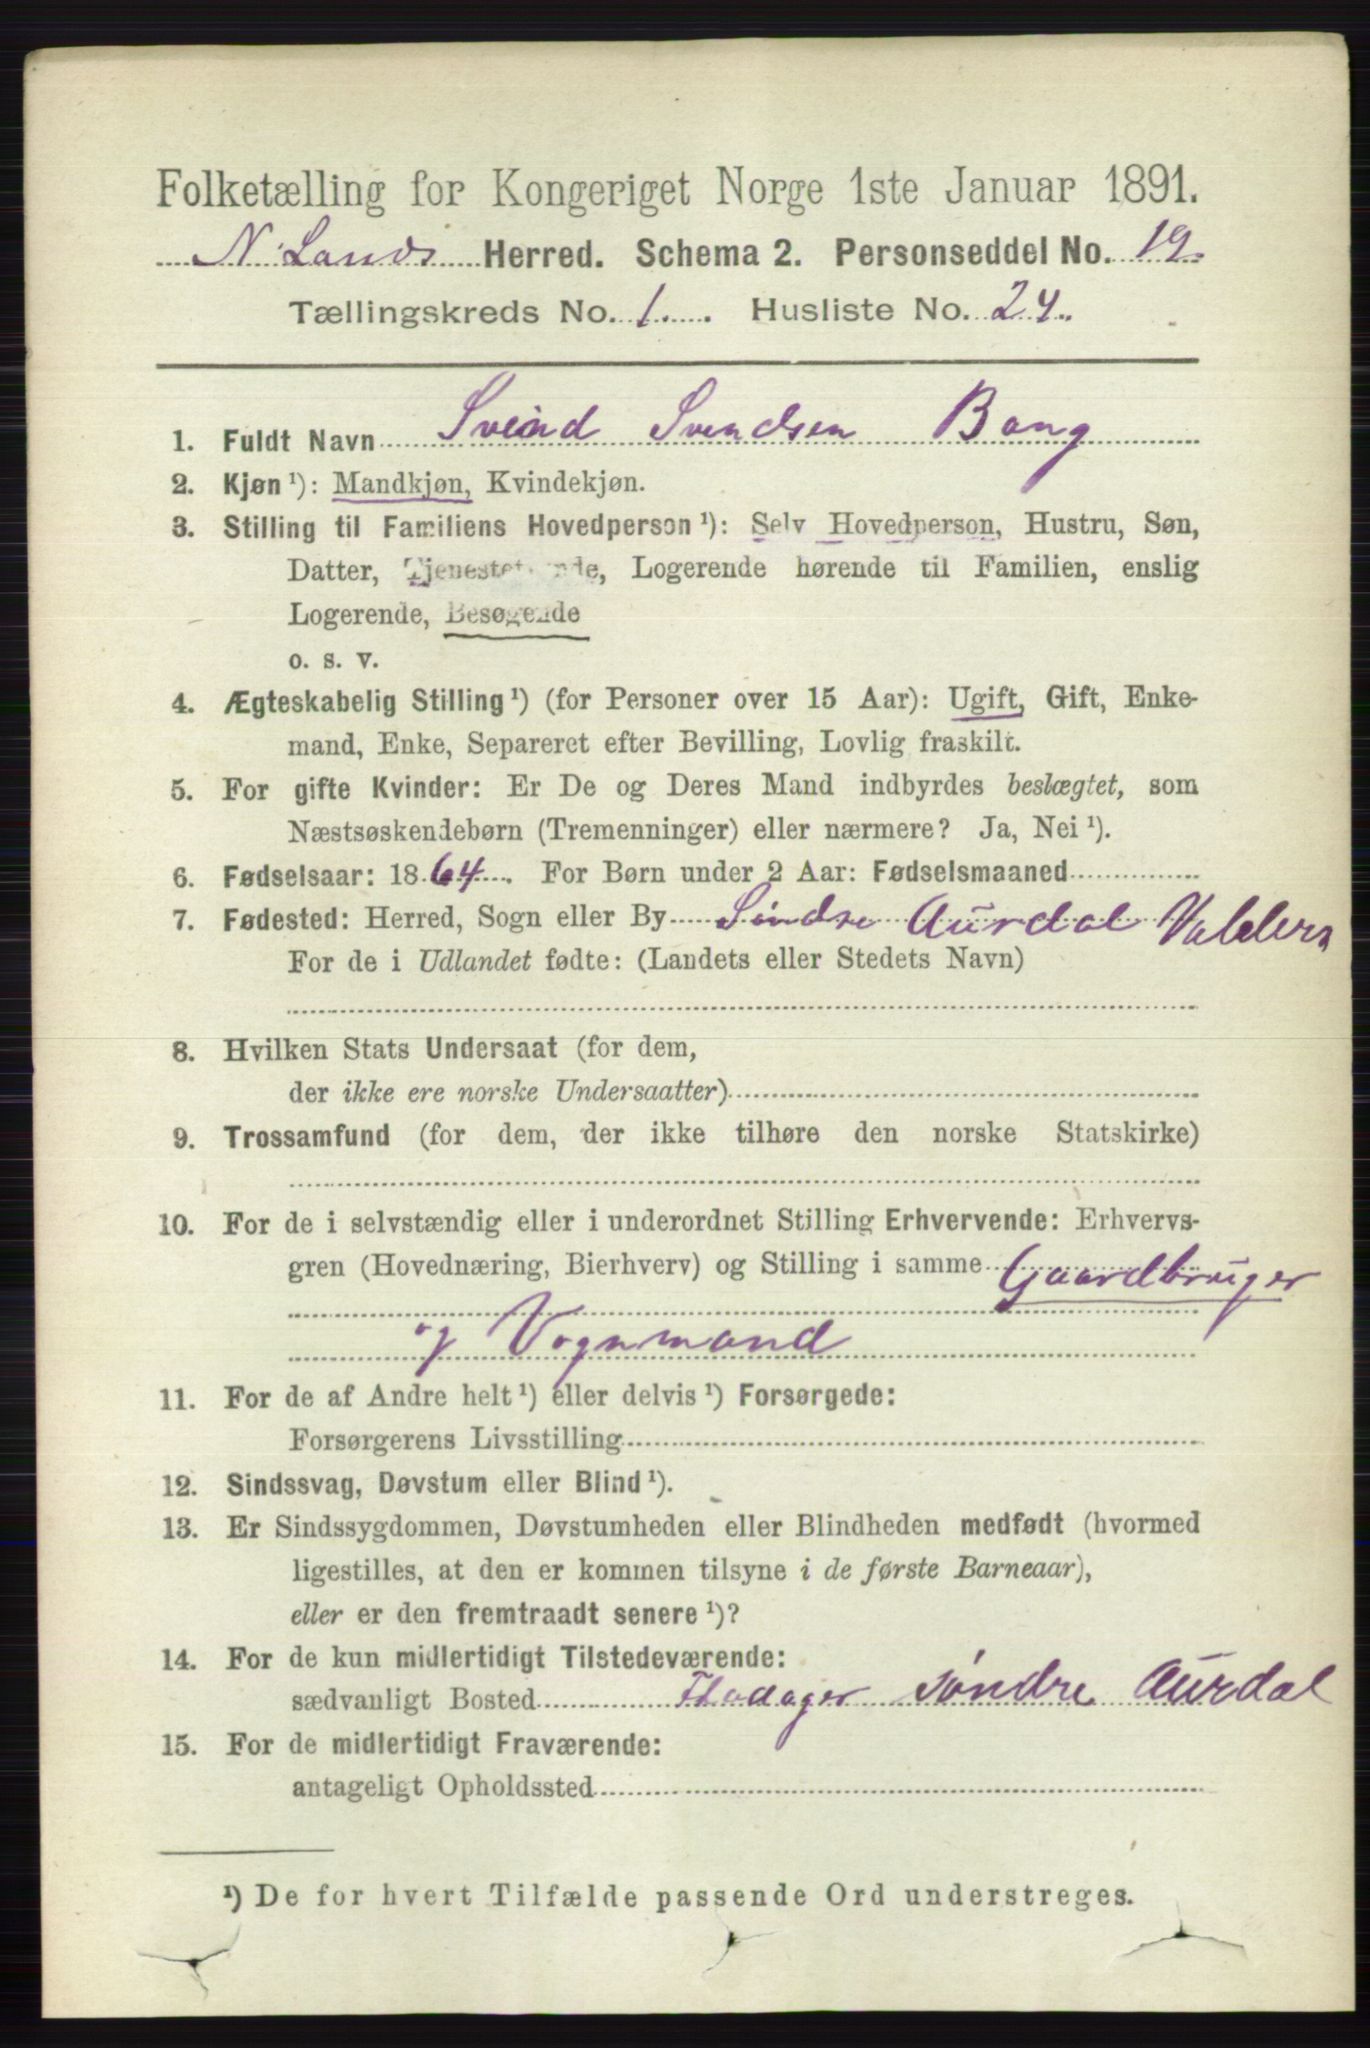 Folketælling for Kongeriget Norge 1ste Januar 1891.
N. Lands Herred. Schema 2. Personseddel No. 19.
Tællingskreds No. 1. Husliste No. 24.
1. Fuldt Navn Sveind Svendsen Bang
2. Kjøn ¹): Mandkjøn, Kvindekjøn.
3. Stilling til Familiens Hovedperson ¹): Selv Hovedperson, Hustru, Søn,
Datter, Tjenestetyende, Logerende hørende til Familien, enslig
Logerende, Besøgende
o. s. v.
4. Ægteskabelig Stilling ¹) (for Personer over 15 Aar): Ugift, Gift, Enke-
mand, Enke, Separeret efter Bevilling, Lovlig fraskilt.
5. For gifte Kvinder: Er De og Deres Mand indbyrdes beslægtet, som
Næstsøskendebørn (Tremenninger) eller nærmere? Ja, Nei ¹).
6. Fødselsaar: 1864. For Børn under 2 Aar: Fødselsmaaned
7. Fødested: Herred, Sogn eller By Søndre Aurdal Valders
For de i Udlandet fødte: (Landets eller Stedets Navn)
8. Hvilken Stats Undersaat (for dem,
der ikke ere norske Undersaatter)
9. Trossamfund (for dem, der ikke tilhøre den norske Statskirke)
10. For de i selvstændig eller i underordnet Stilling Erhvervende: Erhvervs-
gren (Hovednæring, Bierhverv) og Stilling i samme Gaardbruger
og Vognmand
11. For de af Andre helt ¹) eller delvis ¹) Forsørgede:
Forsørgerens Livsstilling
12. Sindssvag, Døvstum eller Blind ¹).
13. Er Sindssygdommen, Døvstumheden eller Blindheden medfødt (hvormed
ligestilles, at den er kommen tilsyne i de første Barneaar),
eller er den fremtraadt senere ¹)?
14. For de kun midlertidigt Tilstedeværende:
sædvanligt Bosted Fladager Søndre Aurdal
15. For de midlertidigt Fraværende:
antageligt Opholdssted
¹) De for hvert Tilfælde passende Ord understreges.